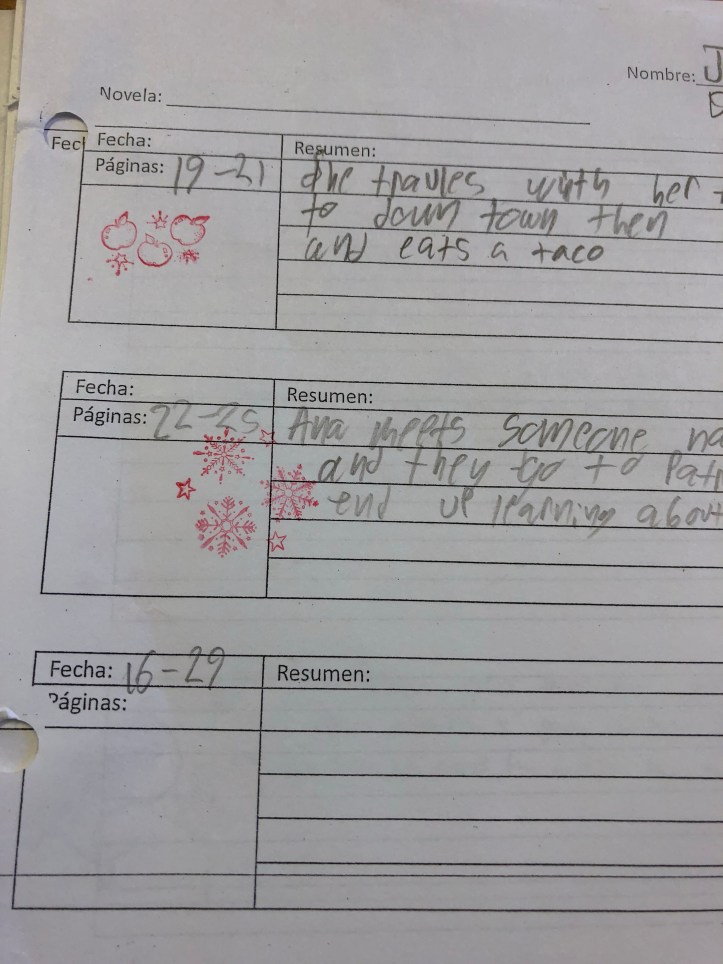 Nombre: J
Novela:
Fecl
Fecha:
Resumen:
Páginas: 19-21
She travles with her
to down town then
and eats a taco
Fecha:
Resumen:
Páginas: 22-25
Ana meets someone na
and they go to Pati
end up learning about
Fecha: 16-29
Resumen:
Páginas: